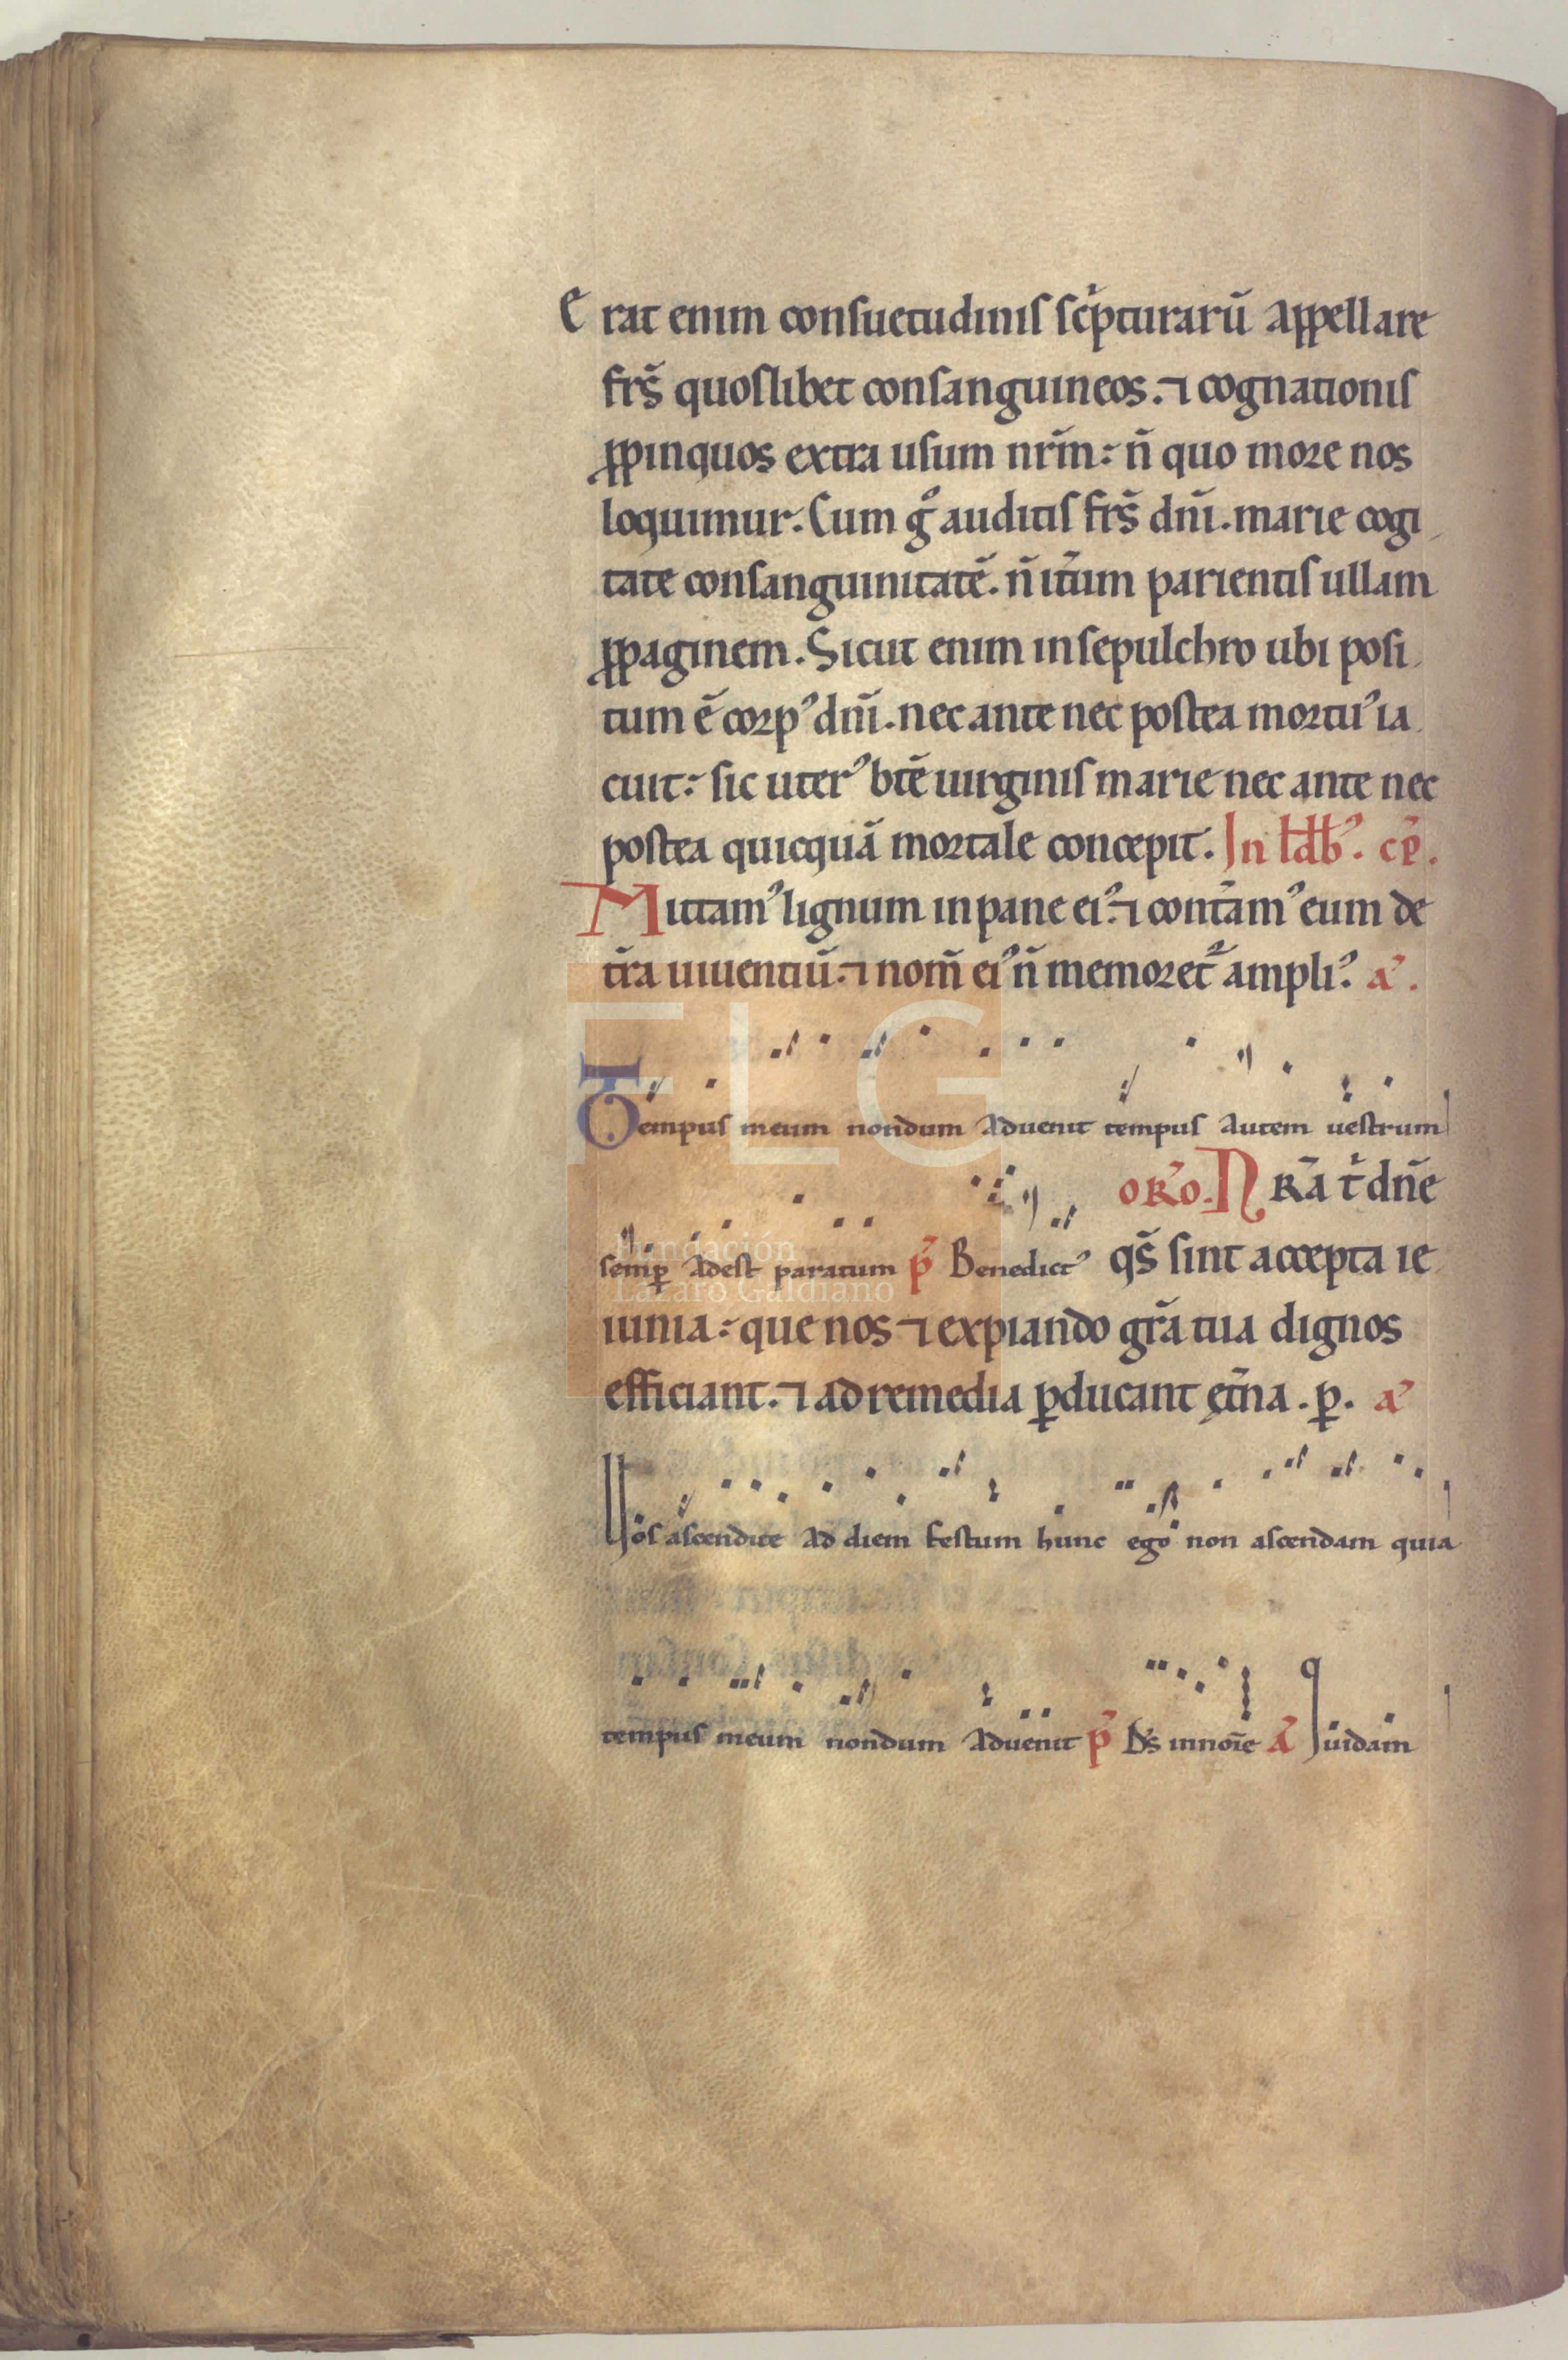 Erat enim consuetudinis sc̓pturarū appellare
fr̃s quoslibet consanguineos. ⁊ cognationis
ꝓpinquos extra usum nrm̃: ñ quo more nos
loquimur. Cum gͦ auditis fr̃s dnĩ. marie cogi
tate consanguinitatē. ñ it̃um parientis ullam
ꝓpaginem. Sicut enim in sepulchro ubi posi
tum ē corpꝰ dnĩ. nec ante nec postea mortuꝰ ia
cuit: sic uterꝰ btẽ uirginis marie nec ante nec
postea quicquā mortale concepit. In ldbꝰ. cp̃.
Mittamꝰ lignum in pane eiꝰ. ⁊ cont̃amꝰ eum de
t̃ra uiuentiū. ⁊ nom̃ eiꝰ ñ memoret᷑ ampliꝰ. a᷒.
Tempus meum nondum aduenit tempus autem uestrum
oꝶo. Nꝶa t̓ dñe
semꝑ adest paratum p̃ Benedictꝰ qs̃ sint accepta ie
iunia: que nos ⁊ expiando gr̃a tua dignos
efficiant. ⁊ ad remedia ꝑducant ęt̃na. ꝑ. a᷒
Uos ascendite ad diem festum hunc ego non ascendam quia
tempus meum nondum aduenit p̃ Ds̃ in noĩe a᷒ Quidam
FLG
Fundación
Lázaro Galdiano